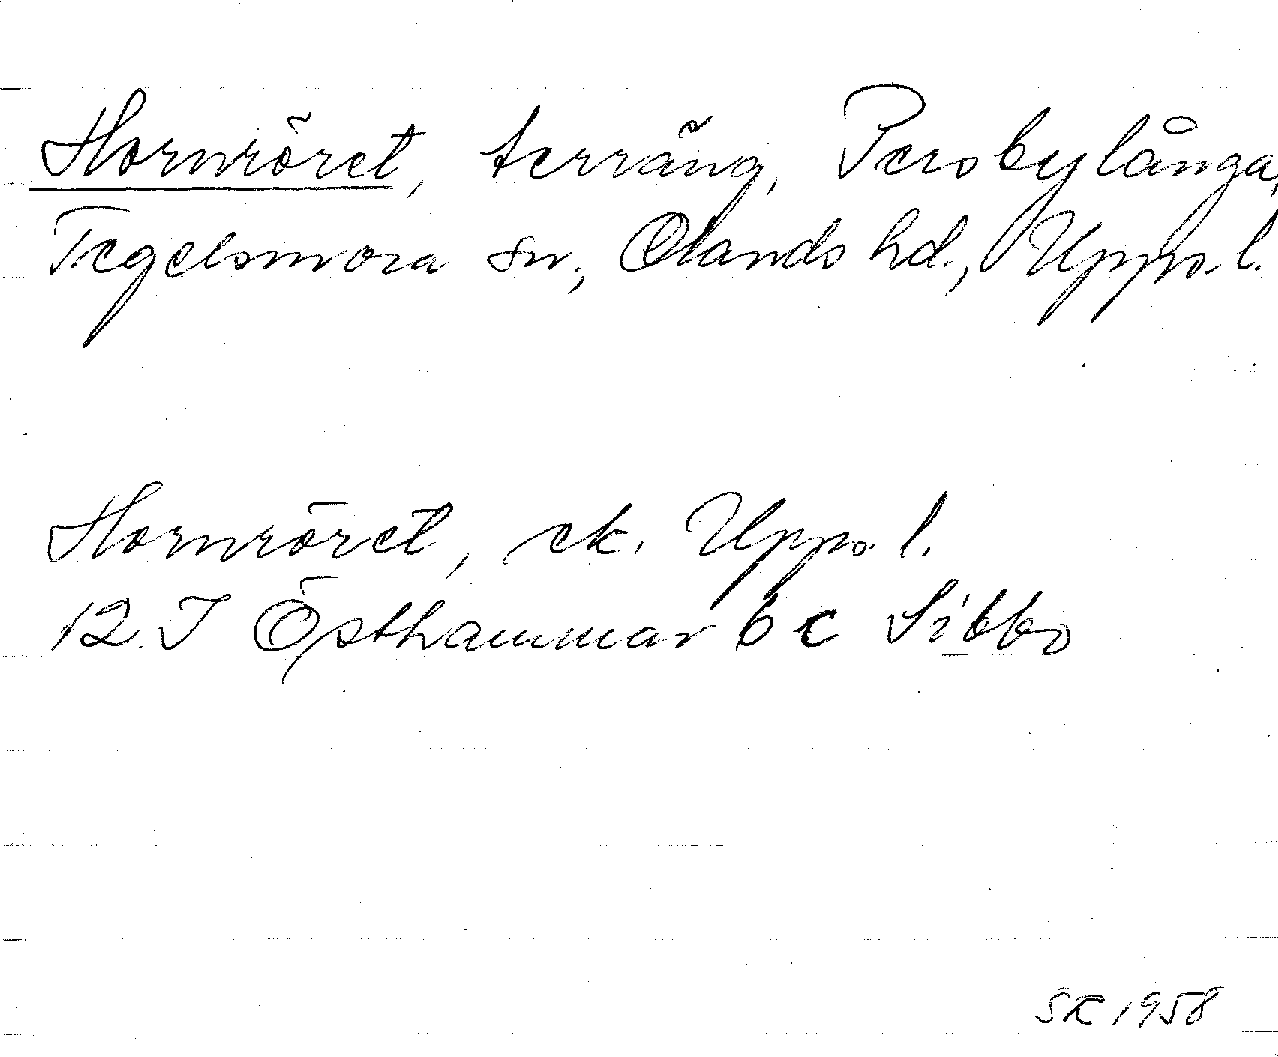 Hornröret, terräng, Persbylånga,
Tegelsmora sn, Olands hd., Upps. l.
Hornröret, ek. Upps. l.
12. I Östhammar 6 c Sibbo
SK 1958